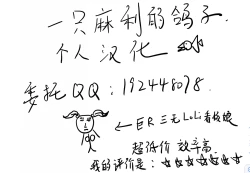 一只麻利的鸽子.
个人汉化
委托QQ：192448078.
← ER 三无Loli看板娘
超低价 效率高
我的评价是：☆☆☆☆☆☆☆